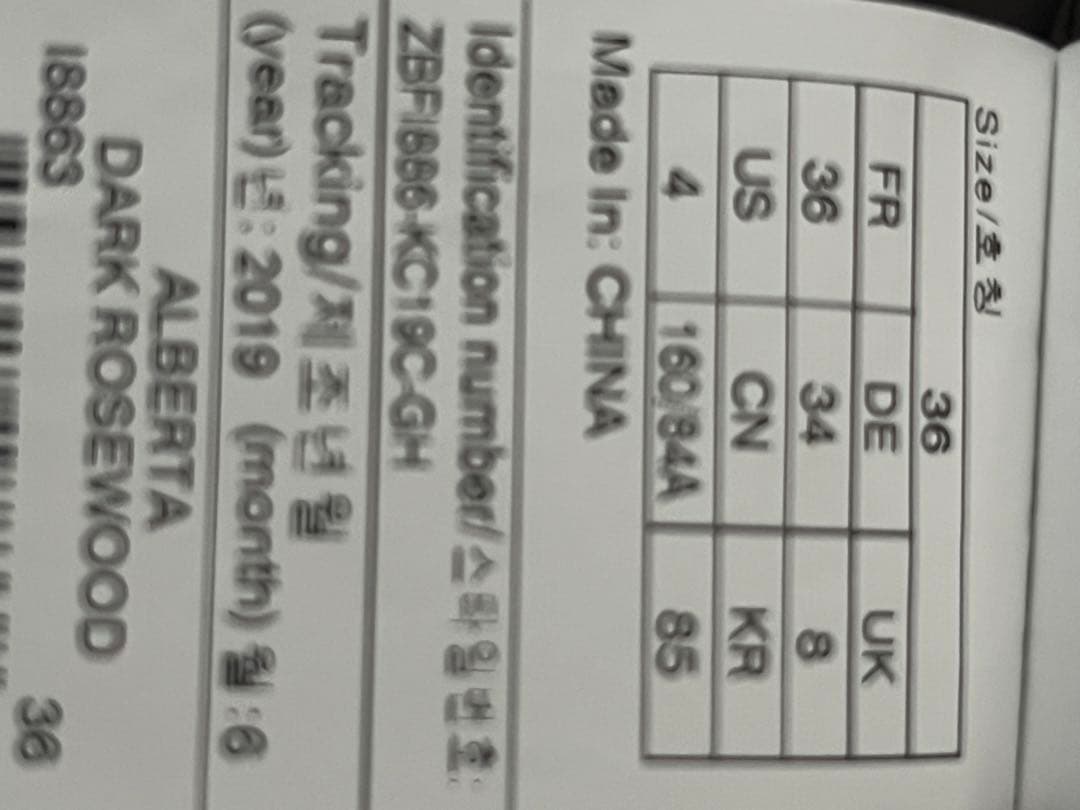 Size/호칭
36
FR DE UK
36 34 8
US CN KR
4 160/84A 85
Made In: CHINA
Identification number/스타일번호:
ZBFI886-KC19C-GH
Tracking/제조년월
(year)년: 2019 (month) 월:6
ALBERTA
DARK ROSEWOOD
18863 36